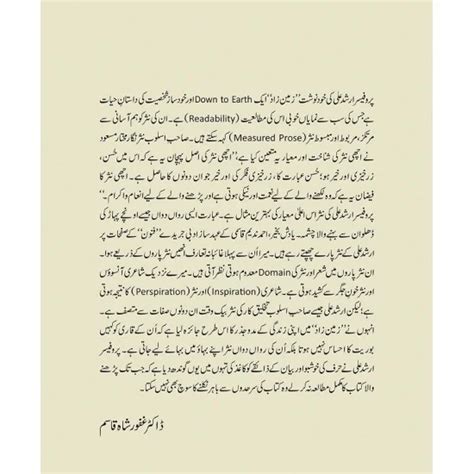 پروفیسر ارشد علی کی خود نوشت "زمین زاد" ایک Down to Earth اور خود ساز شخصیت کی داستانِ حیات
ہے جس کی سب سے نمایاں خوبی اس کی مطالعیت (Readability) ہے۔ ان کی نثر کو ہم آسانی سے
مرتکز، مربوط اور مبسوط نثر (Measured Prose) کہہ سکتے ہیں۔ صاحب اسلوب نثر نگار مختار مسعود
نے اچھی نثر کی شناخت اور معیار یہ متعین کیا ہے کہ "اچھی نثر کی اصل پہچان یہ ہے کہ اس میں حُسن،
زرخیزی اور خیر ہو: حُسن عبارت کا، زرخیزی فکر کی اور خیر جو ان دونوں کا حاصل ہے۔ اچھی نثر کا
فیضان یہ ہے کہ وہ لکھنے والے کے لیے نعمت اور نیکی ہوتی ہے اور پڑھنے والے کے لیے انعام و اکرام۔"
ارشد علی کی نثر اس اعلیٰ معیار کی بہترین مثال ہے۔ عبارت ایسی رواں دواں جیسے اونچے پہاڑ کی
ڈھلوان سے بہنے والا چشمہ۔ یادش بخیر، احمد ندیم قاسمی کے عہد ساز ادبی جریدے "فنون" کے صفحات پر
ارشد علی کے نثر پارے چھپتے رہے ہیں۔ میرا اُن سے پہلا غائبانہ تعارف انھیں نثر پاروں کے ذریعے ہوا۔
ان نثر پاروں میں شعر اور نثر کی Domain معدوم ہوتی نظر آتی ہیں۔ میرے نزدیک شاعری آنسوؤں
اور نثر خونِ جگر سے کشید ہوتی ہے۔ شاعری (Inspiration) اور نثر (Perspiration) کا نتیجہ ہوتا
ہے لیکن ارشد علی جیسے صاحب اسلوب تخلیق کار کی نثر بیک وقت ان دونوں صفات سے متصف ہے۔
انہوں نے "زمین زاد" میں اپنی زندگی کے مدوجذر کا اس طرح جائزہ لیا ہے کہ اُن کے قاری کو کہیں
بوریت کا احساس نہیں ہوتا بلکہ اُن کی رواں دواں نثر اپنے بہاؤ میں بہائے لیے جاتی ہے۔ پروفیسر
ارشد علی نے حرف کی خوشبو اور بیان کے ذائقے کو کاغذ کی تہوں میں یوں گوندھ دیا ہے کہ جب تک پڑھنے
والا کتاب کا مکمل مطالعہ نہ کر لے وہ کتاب کی سرحدوں سے باہر نکلنے کا سوچ بھی نہیں سکتا۔
ڈاکٹر غفور شاہ قاسم